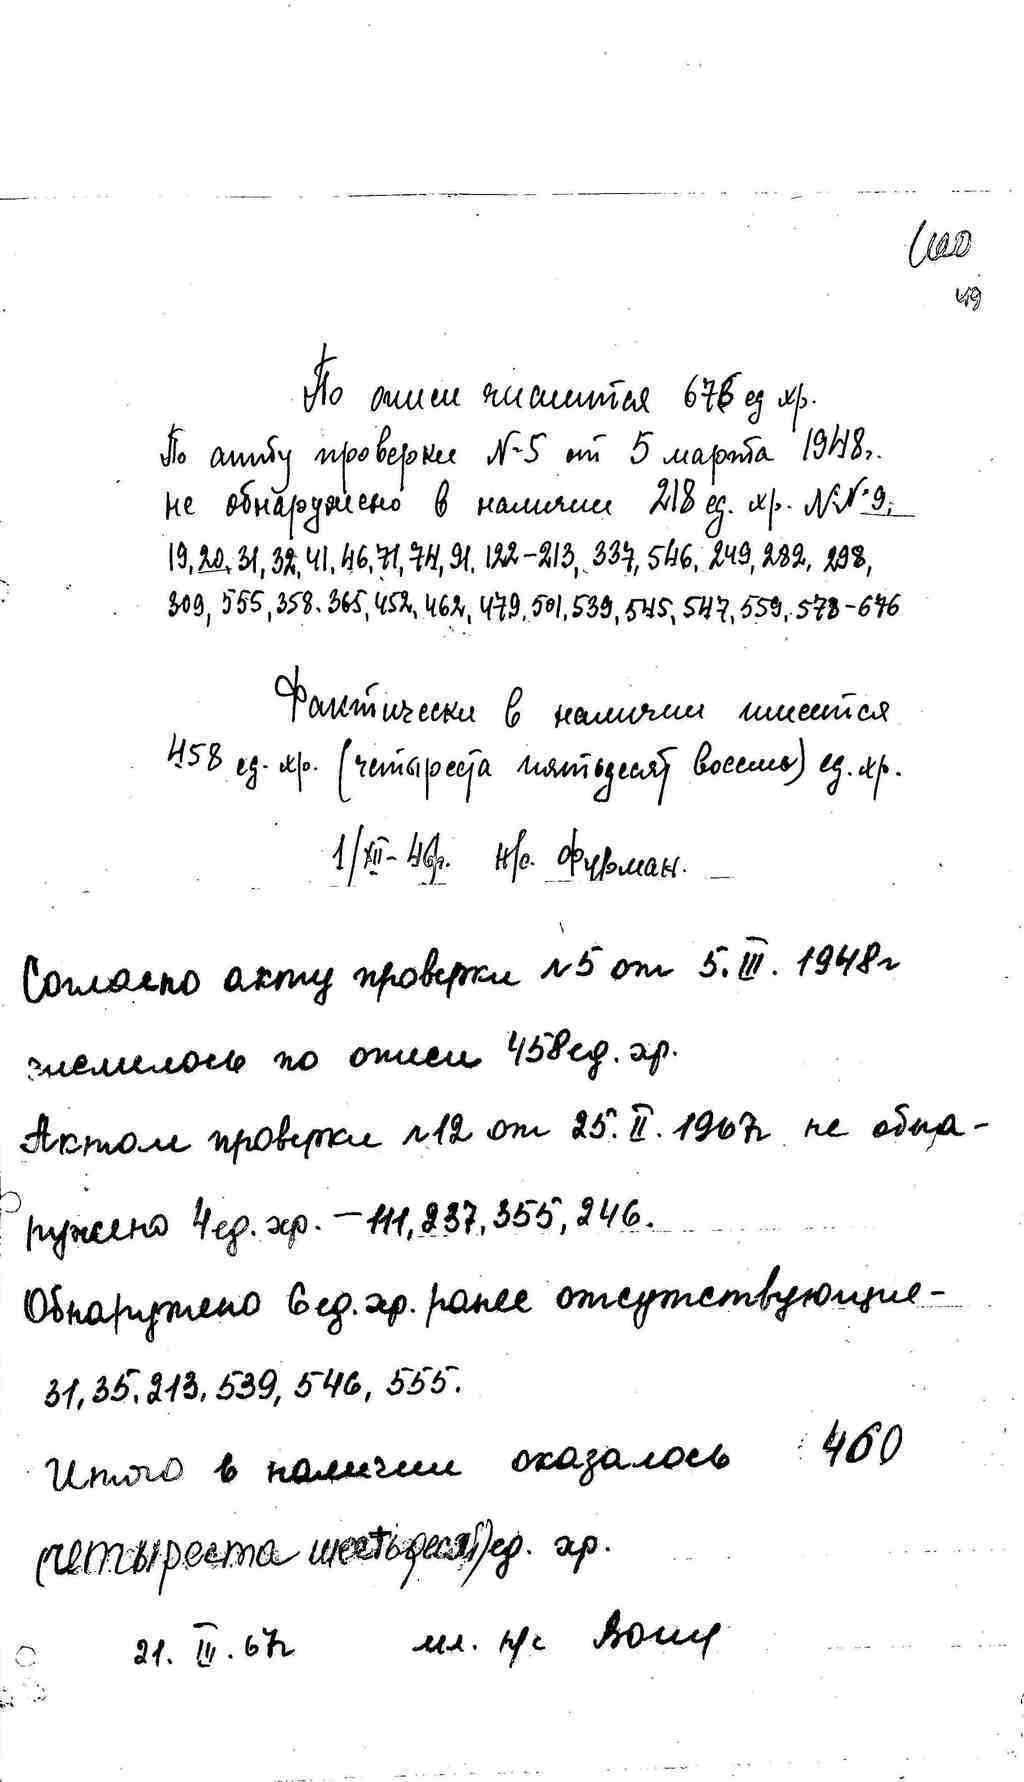 49
По описи числится 676 ед хр.
По акту проверки №5 от 5 марта 1948г.
не обнаружено в наличии 218 ед. хр. №№ 9,
19, 20, 31, 32, 41, 46, 71, 74, 91, 122-213, 337, 546, 249, 282, 298,
309, 555, 358. 365, 452, 462, 479, 501, 539, 545, 547, 559, 578-676
Фактически в наличии имеется
458 ед. хр. (четыреста пятьдесят восемь) ед. хр.
1/XII- н/с. Фурман.
Согласно акту проверки №5 от 5. III. 1948г
числилось по описи 458 ед. хр.
Актом проверки №12 от 25. II. 1967г не обна-
ружено 4 ед. хр. - 111, 237, 355, 246.
Обнаружено 6 ед. хр. ранее отсутствующие -
31, 35. 213, 539, 546, 555.
Итого в наличии оказалось 460
(четыреста шестьдесят) ед. хр.
21. III. 67г мл. н/с